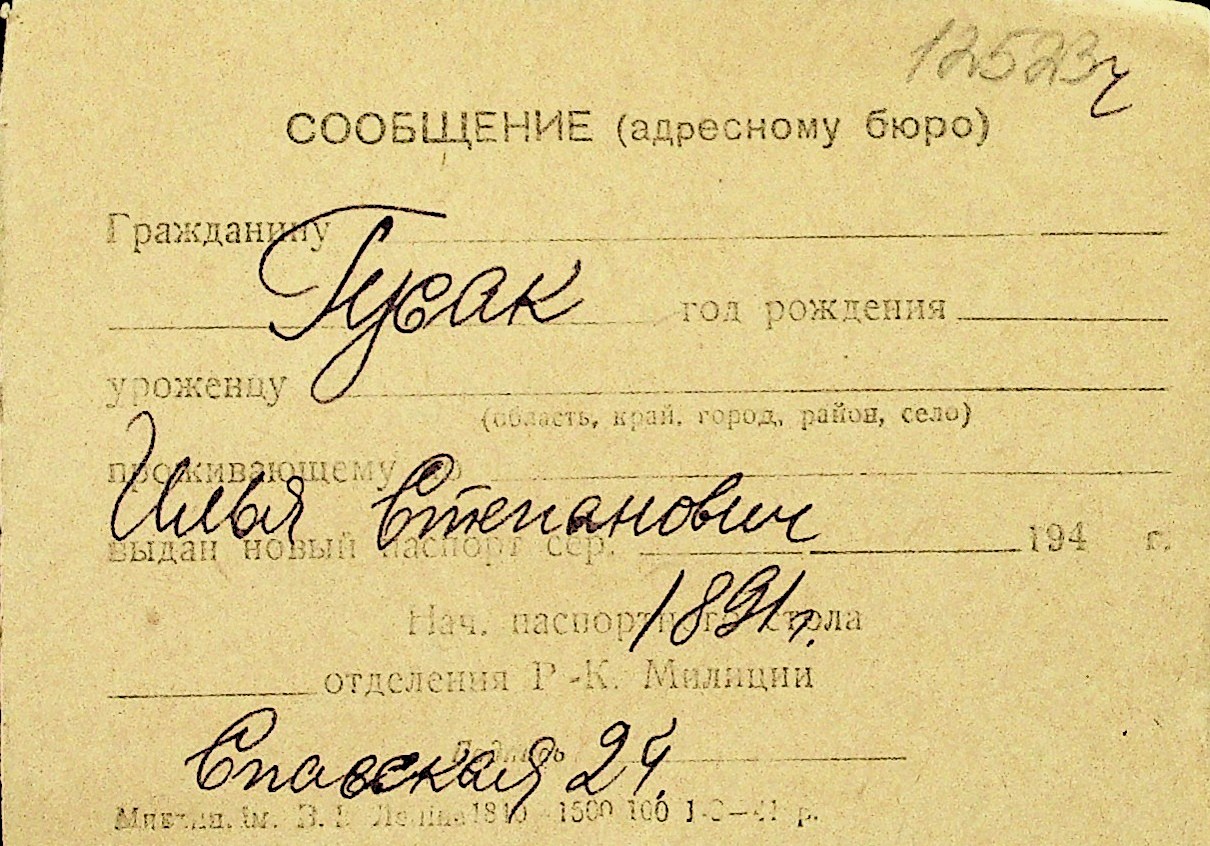 12523
СООБЩЕНИЕ (адресному бюро)
Гражданину
Гусак год рождения
уроженцу
(область, край, город, район, село)
проживающему по
Илья Степанович
выдан новый паспорт сер. 194 г.
1891 г.
Нач. паспортного стола
отделения Р.-К. Милиции
Подпись
Спасская 24.
ім. В. І. Леніна 1500 100